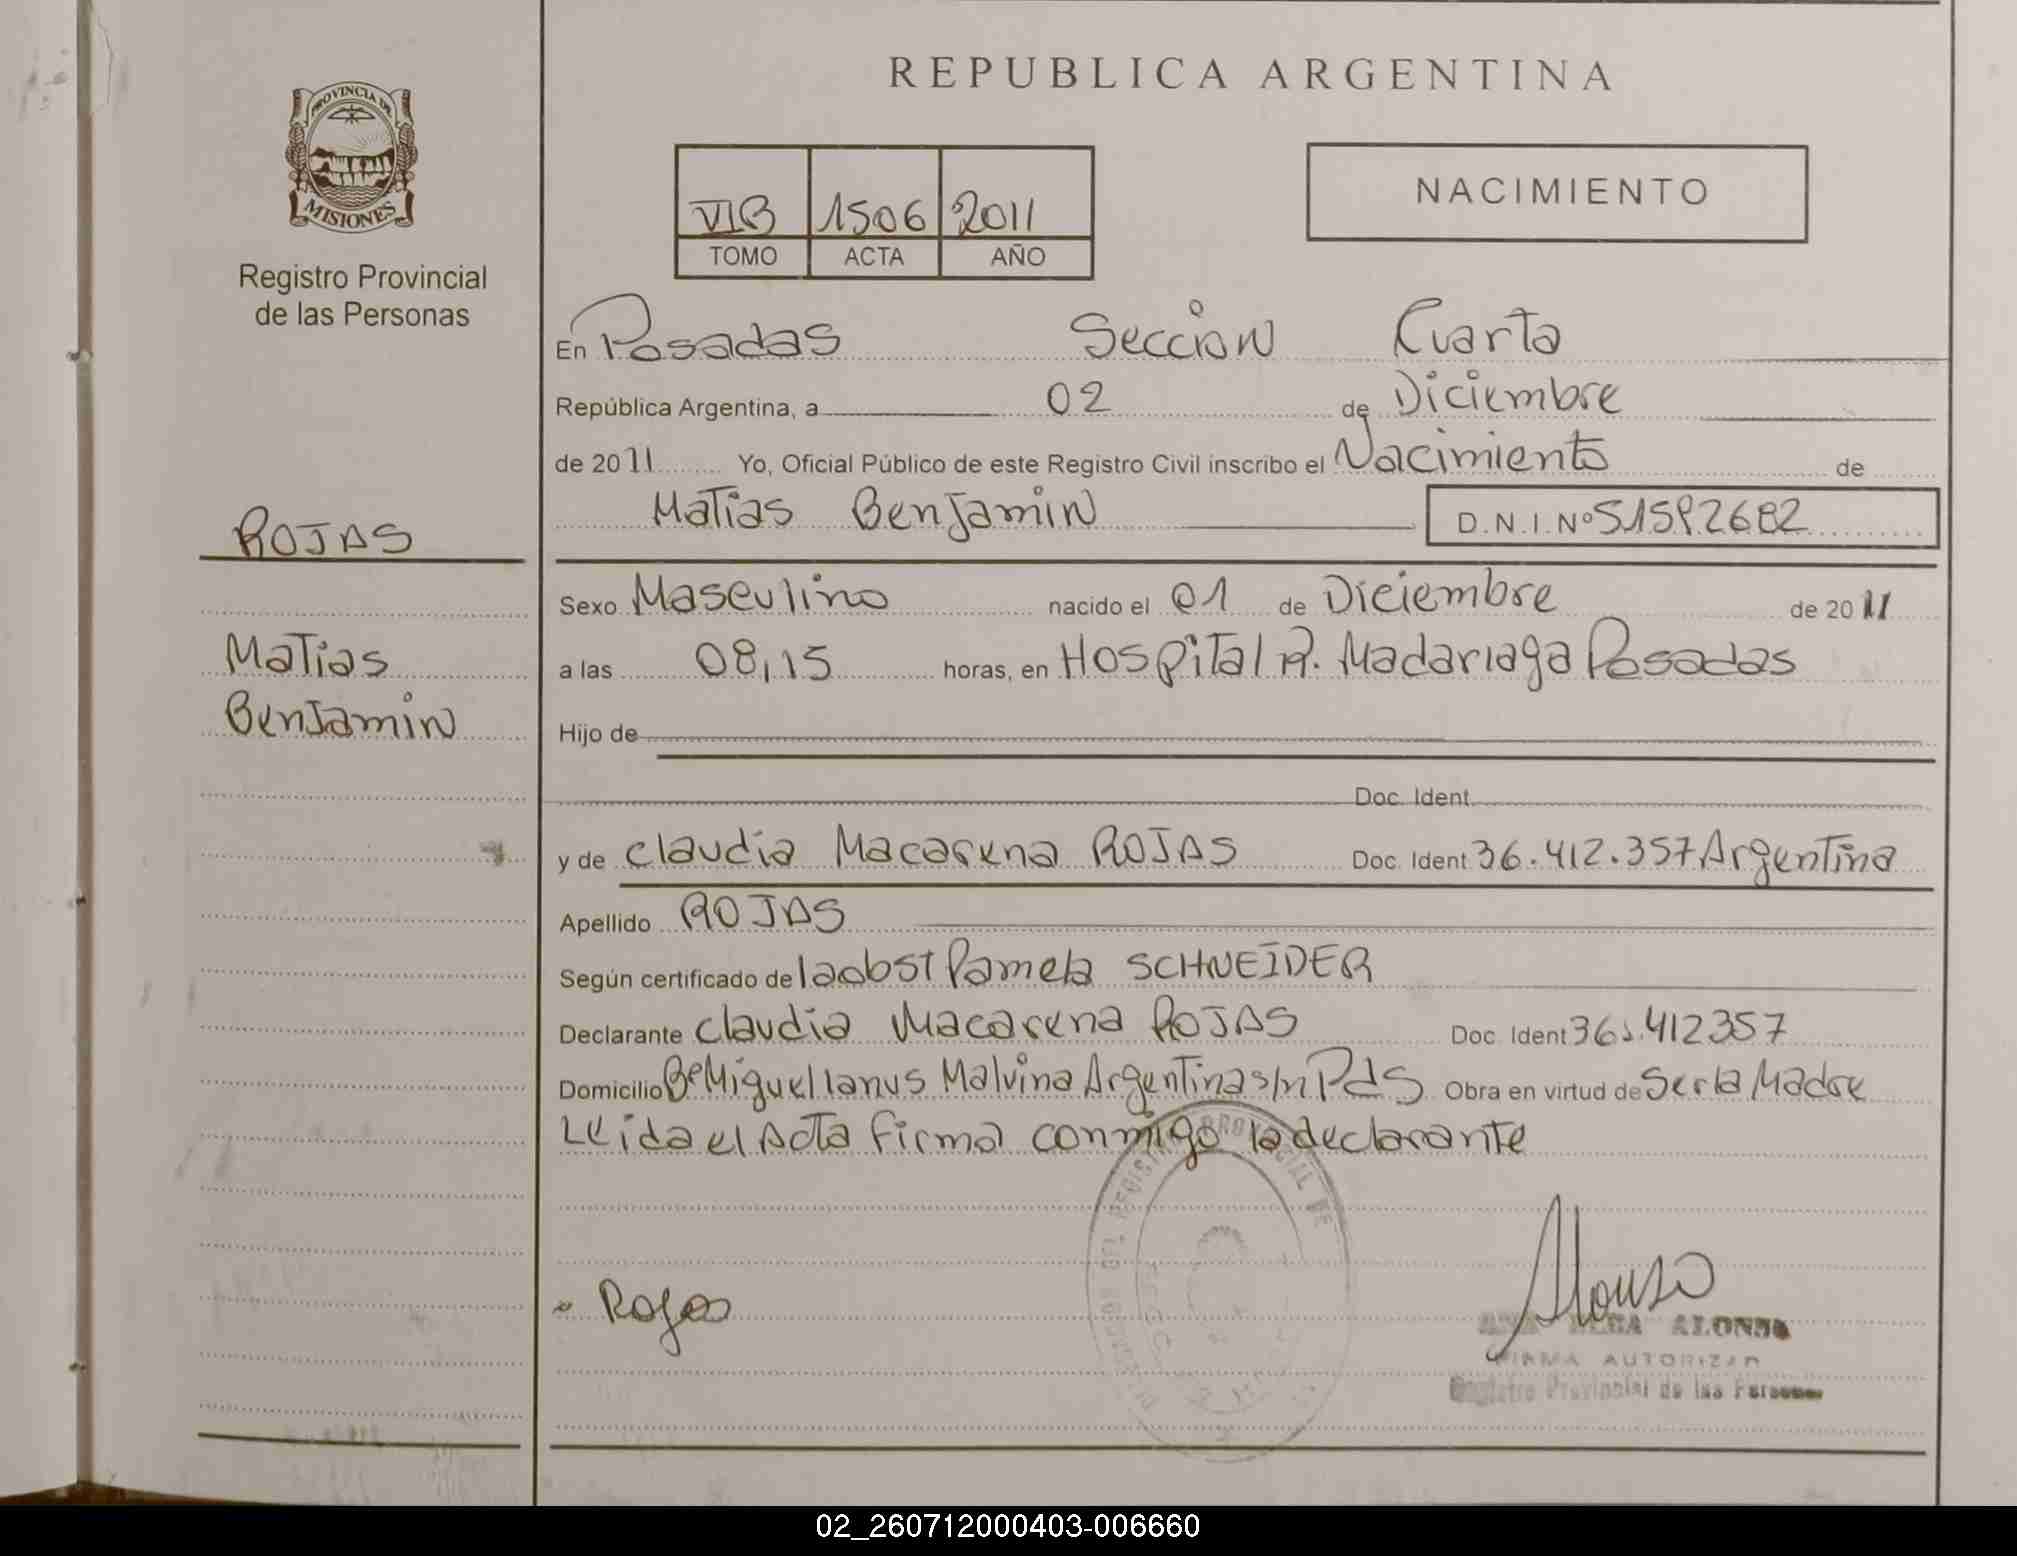 PROVINCIA DE
MISIONES
Registro Provincial
de las Personas
ROJAS
Matias
Benjamin
REPUBLICA ARGENTINA
VIB 1506 2011
TOMO ACTA AÑO
NACIMIENTO
En Posadas Sección Cuarta
República Argentina, a 02 de Diciembre
de 2011 Yo, Oficial Público de este Registro Civil inscribo el Nacimiento de
Matias Benjamin D.N.I.Nº
Sexo Masculino nacido el 01 de Diciembre de 2011
a las 08,15 horas, en Hospital R. Madariaga Posadas
Hijo de
Doc. Ident.
y de Claudia Macarena ROJAS Doc. Ident 36.412.357 Argentina
Apellido ROJAS
Según certificado de la obst Pamela SCHNEIDER
Declarante Claudia Macarena ROJAS Doc. Ident 36.412357
Domicilio Bº Miguel Lanus Malvina Argentina s/n Pds Obra en virtud de Ser la Madre
Leida el Acta firma conmigo la declarante
Rojas
Alonso
ALONSO
FIRMA AUTORIZAD
Registro Provincial de las Personas
02_260712000403-006660